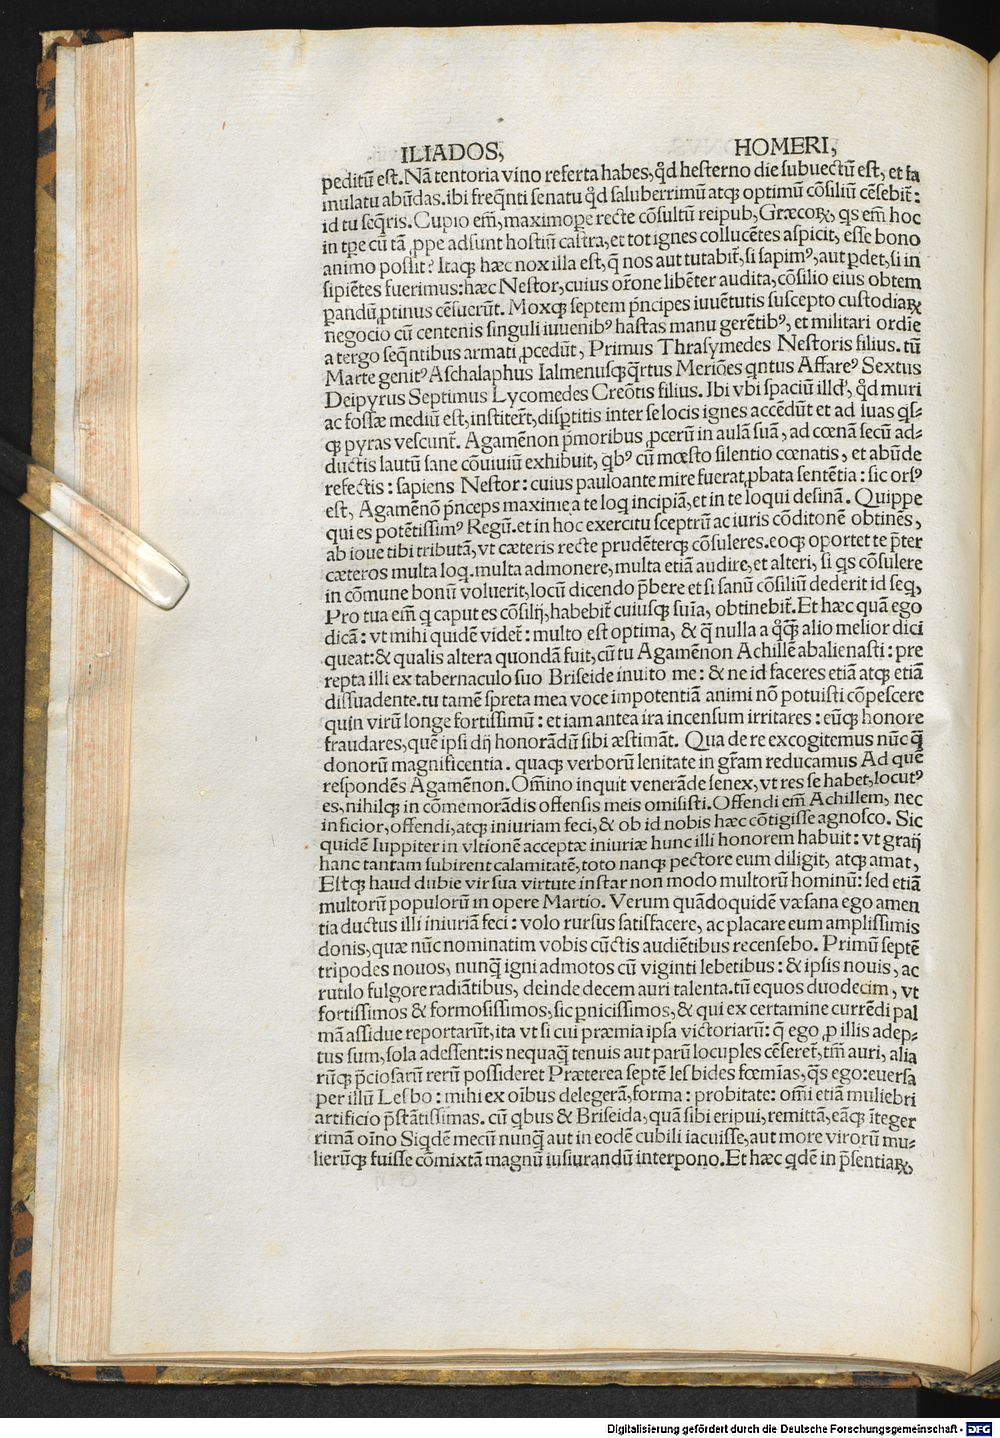 ILIADOS, HOMERI,
peditū est. Nā tentoria vino referta habes, qđ hesterno die subuectū est, et fa
mulatu abūdas. ibi freq̄nti senatu qđ saluberrimū atq; optimū cōsiliū cēsebit̄:
id tu seq̄ris. Cupio em̄, maximopere recte cōsultū reipub, Græcoꝝ, qs em̄ hoc
in tp̄e cū tā ꝓpe adsunt hostiū castra, et tot ignes collucētes aspicit, esse bono
animo possit? Itaq; hæc nox illa est, q̄ nos aut tutabit̄, si sapimꝰ, aut ꝑdet, si in
sipiētes fuerimus: hæc Nestor, cuius or̄one libēter audita, cōsilio eius obtem
ꝑandū ꝓtinus cēsuerūt. Moxq; septem p̄ncipes iuuētutis suscepto custodiaꝝ
negocio cū centenis singuli iuuenibꝰ hastas manu gerētibꝰ, et militari ordīe
a tergo seq̄ntibus armati ꝓcedūt, Primus Thrasymedes Nestoris filius. tū
Marte genitꝰ Aschalaphus Ialmenusq; qrtus Meriōes qntus Affareꝰ Sextus
Deipyrus Septimus Lycomedes Creōtis filius. Ibi vbi spaciū illđ, qđ muri
ac fossæ mediū est, institer̄t, disꝑtitis inter se locis ignes accēdūt et ad suas qs-
q; pyras vescunt̄. Agamēnon p̄moribus ꝓcerū in aulā suā, ad cœnā secū ad-
ductis lautū sane cōuiuiū exhibuit, qbꝰ cū mœsto silentio cœnatis, et abūde
refectis: sapiens Nestor: cuius pauloante mire fuerat ꝓbata sentētia: sic orsꝰ
est, Agamēnō p̄nceps maxime, a te loq incipiā, et in te loqui desinā. Quippe
qui es potētissimꝰ Regū. et in hoc exercitu sceptrū ac iuris cōditonē obtinēs,
ab ioue tibi tributā, vt cæteris recte prudēterq; cōsuleres. eoq; oportet te p̄ter
cæteros multa loq. multa admonere, multa etiā audire, et alteri, si qs cōsulere
in cōmune bonū voluerit, locū dicendo p̄bere et si sanū cōsiliū dederit id seq,
Pro tua em̄ q caput es cōsilij, habebit̄ cuiusq; sn̄ia, obtinebit̄. Et hæc quā ego
dicā: vt mihi quidē videt̄: multo est optima, & q̄ nulla a qq̄ alio melior dici
queat: & qualis altera quondā fuit, cū tu Agamēnon Achillē abalienasti: pre
repta illi ex tabernaculo suo Briseide inuito me: & ne id faceres etiā atq; etiā
dissuadente. tu tamē spreta mea voce impotentiā animi nō potuisti cōpescere
quin virū longe fortissimū: et iam antea ira incensum irritares: eūq; honore
fraudares, quē ipsi dij honorādū sibi æstimāt. Qua de re excogitemus nūc q̄
donorū magnificentia. quaq; verborū lenitate in gr̄am reducamus Ad quē
respondēs Agamēnon. Om̄ino inquit venerāde senex, vt res se habet, locutꝰ
es, nihilq; in cōmemorādis offensis meis omisisti. Offendi em̄ Achillem, nec
inficior, offendi, atq; iniuriam feci, & ob id nobis hæc cōtigisse agnosco. Sic
quidē Iuppiter in vltionē acceptæ iniuriæ hunc illi honorem habuit: vt graij
hanc tantam subirent calamitatē, toto nanq; pectore eum diligit, atq; amat,
Estq; haud dubie vir sua virtute instar non modo multorū hominū: sed etiā
multorū populorū in opere Martio. Verum quādoquidē væsana ego amen
tia ductus illi iniuriā feci: volo rursus satisfacere, ac placare eum amplissimis
donis, quæ nūc nominatim vobis cūctis audiētibus recensebo. Primū septē
tripodes nouos, nunq̄ igni admotos cū viginti lebetibus: & ipsis nouis, ac
rutilo fulgore radiātibus, deinde decem auri talenta. tū equos duodecim, vt
fortissimos & formosissimos, sic ꝑnicissimos, & qui ex certamine currēdi pal
mā assidue reportarūt, ita vt si cui præmia ipsa victoriarū: q̄ ego ꝓ illis adep-
tus sum, sola adessent: is nequaq̄ tenuis aut parū locuples cēseret̄, tm̄ auri, alia
rūq; p̄ciosarū rerū possideret Præterea septē lesbides fœmīas, q̄s ego: euersa
per illū Lesbo: mihi ex oībus delegerā, forma: probitate: omī etiā muliebri
artificio p̄stātissimas. cū qbus & Briseida, quā sibi eripui, remittā, eāq; īteger
rimā oīno Siqdē mecū nunq̄ aut in eodē cubili iacuisse, aut more virorū mu-
lierūq; fuisse cōmixtā magnū iusiurandū interpono. Et hæc qdē in p̄sentiaꝝ,
Digitalisierung gefördert durch die Deutsche Forschungsgemeinschaft - DFG